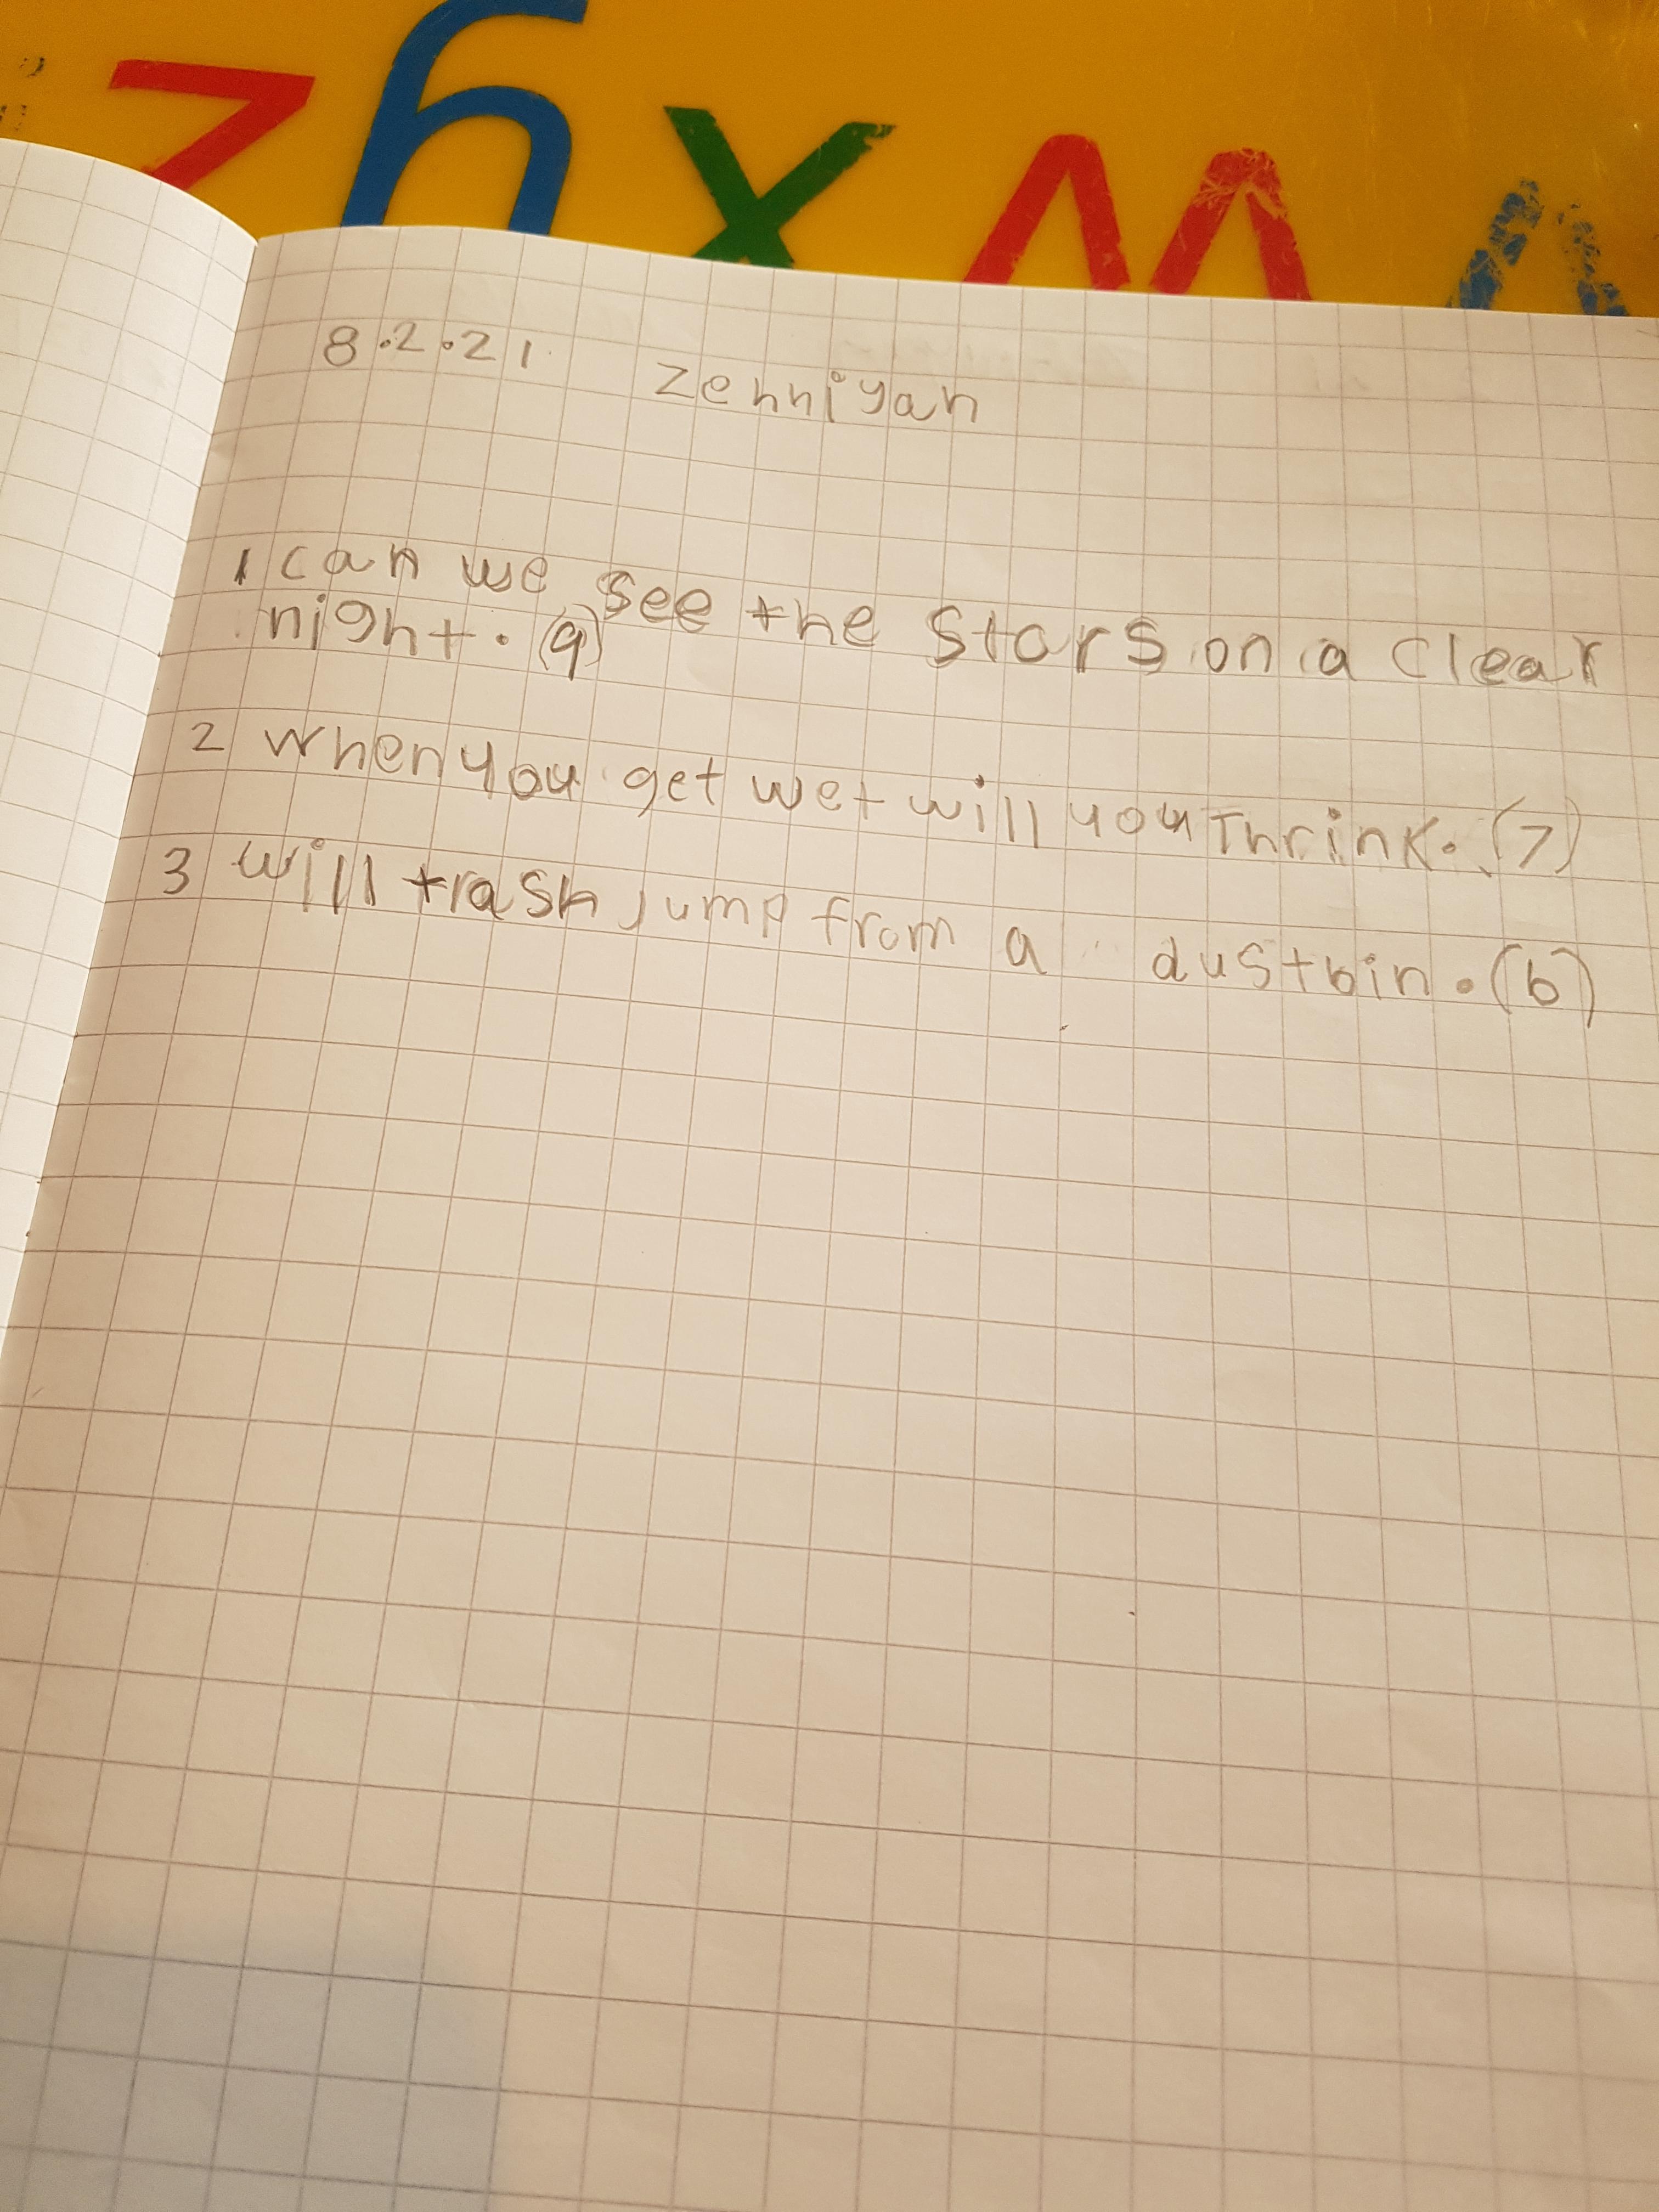 z h x m
8.2.21 zenniyan
1 can we see the stars on a clear
night. (9)
2 when you get wet will you Thrink. (7)
3 will trash jump from a dustbin. (6)